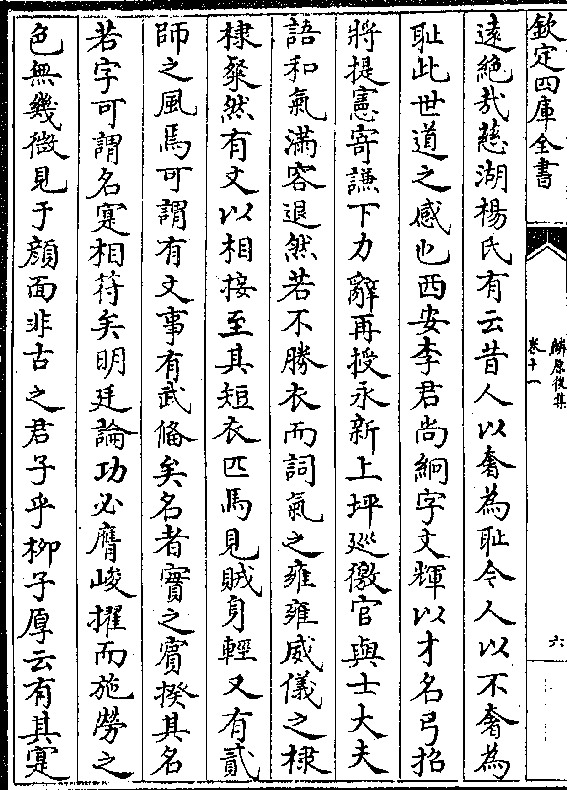 欽定四庫全書
麟原後集
卷十一
六
遠絶哉慈湖楊氏有云昔人以奢為耻今人以不奢為
耻此世道之感也西安李君尚絅字文輝以才名弓招
將提憲寄謙下力辭再授永新上坪廵徼官與士大夫
語和氣滿容退然若不勝衣而詞氣之雍雍威儀之棣
棣粲然有文以相接至其短衣匹馬見賊身輕又有貳
師之風焉可謂有文事有武脩矣名者實之賔揆其名
若字可謂名寔相符矣明廷論功必膺峻擢而施勞之
色無幾微見于顔面非古之君子乎柳子厚云有其寔